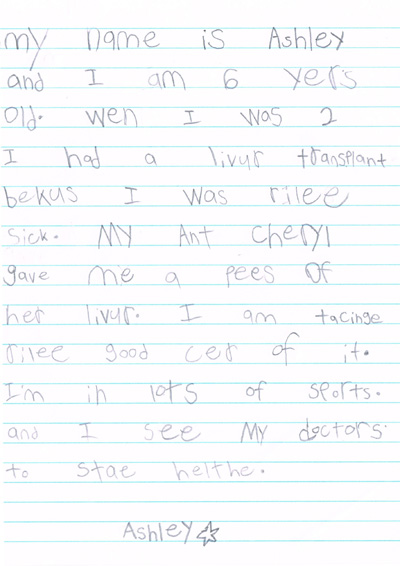 my name is Ashley
and I am 6 yers
old. wen I was 2
I had a livur transplant
bekus I was rilee
sick. MY Ant Cheryl
gave me a pees of
her livur. I am tacinge
rilee good cer of it.
I'm in lots of sports.
and I see My doctors.
to stae helthe.
Ashley